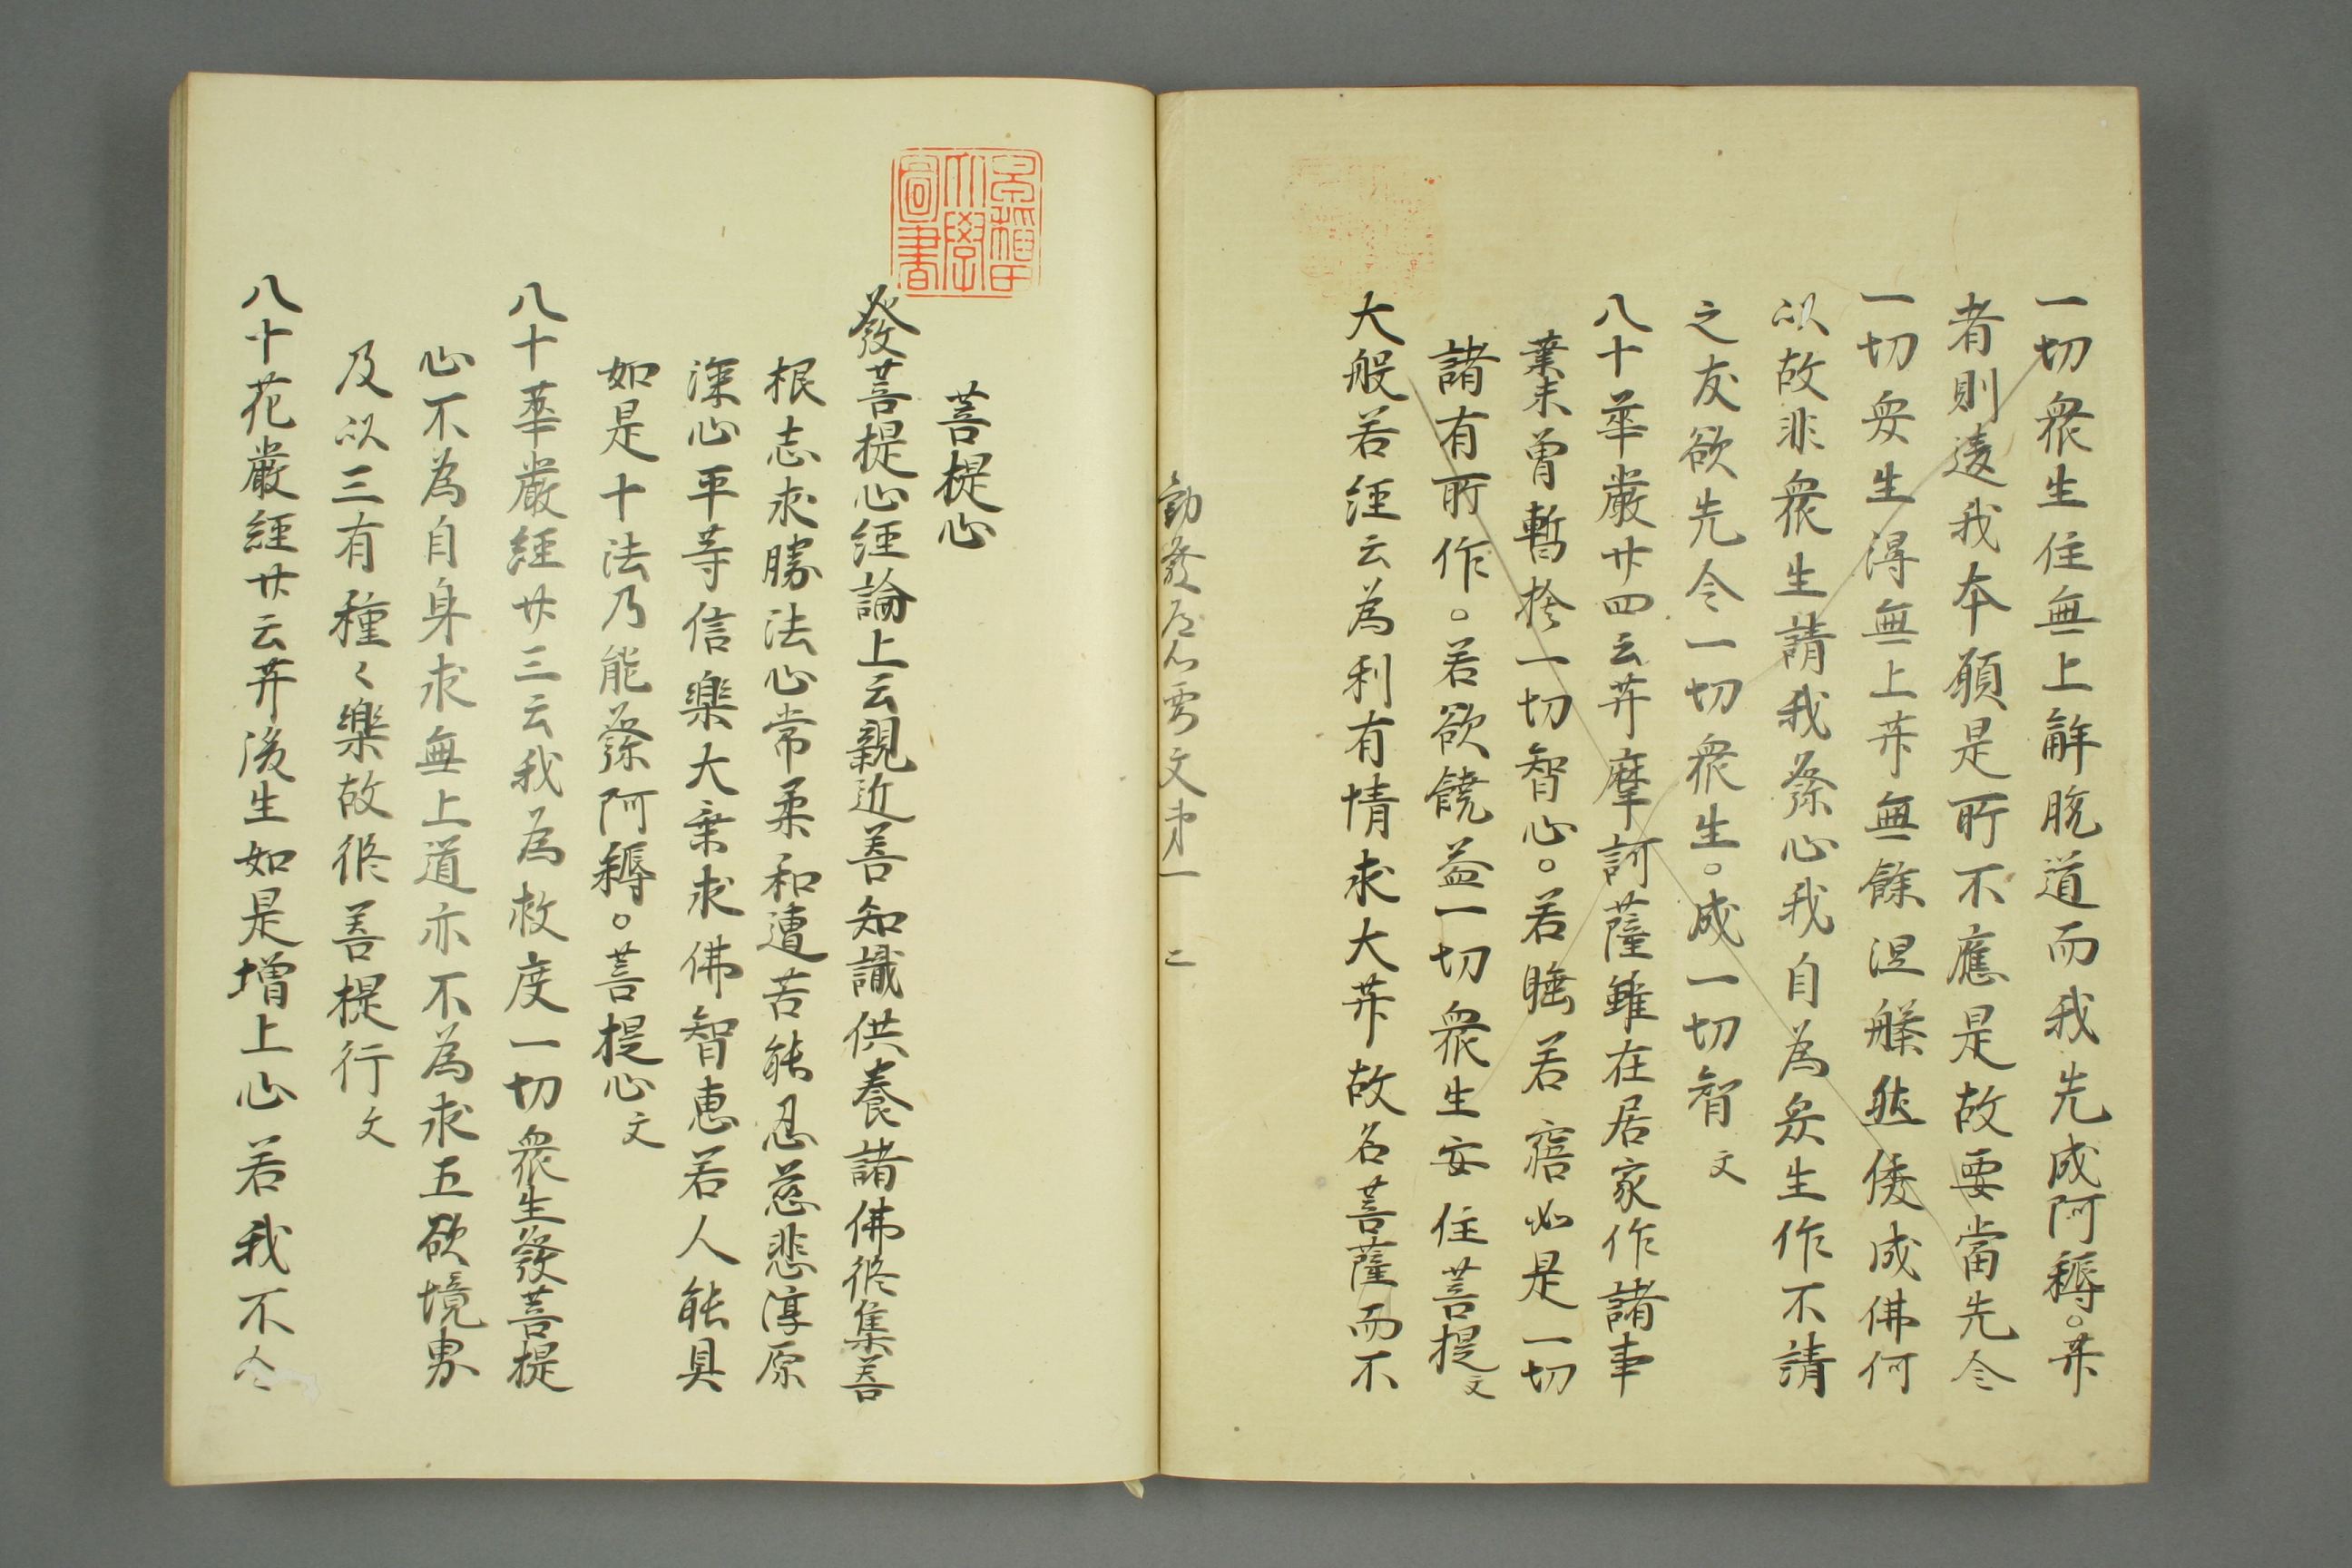 一切衆生住無上解脱道而我先成阿耨。𦬇
者則違我本願是所不應是故要當先令
一切衆生得無上𦬇無餘涅槃然後成佛何
以故非衆生請我發心我自為衆生作不請
之友欲先令一切衆生。成一切智文
八十華嚴廿四云𦬇摩訶薩雖在居家作諸事
業未曽暫捨一切智心。若睡若寤如是一切
諸有所作。若欲饒益一切衆生安住菩提文
大般若経云為利有情求大𦬇故名菩薩而不
勸發 要文第一 二
早稲田大學圖書
菩提心
發菩提心経論上云親近善知識供養諸佛修集善
根志求勝法心常柔和遭苦能忍慈悲淳厚
深心平等信樂大乗求佛智恵若人能具
如是十法乃能發阿耨。菩提心文
八十華嚴経廿三云我為救度一切衆生發菩提
心不為自身求無上道亦不為求五欲境界
及以三有種〻樂故修菩提行文
八十花嚴経廿云𦬇後生如是増上心若我不令